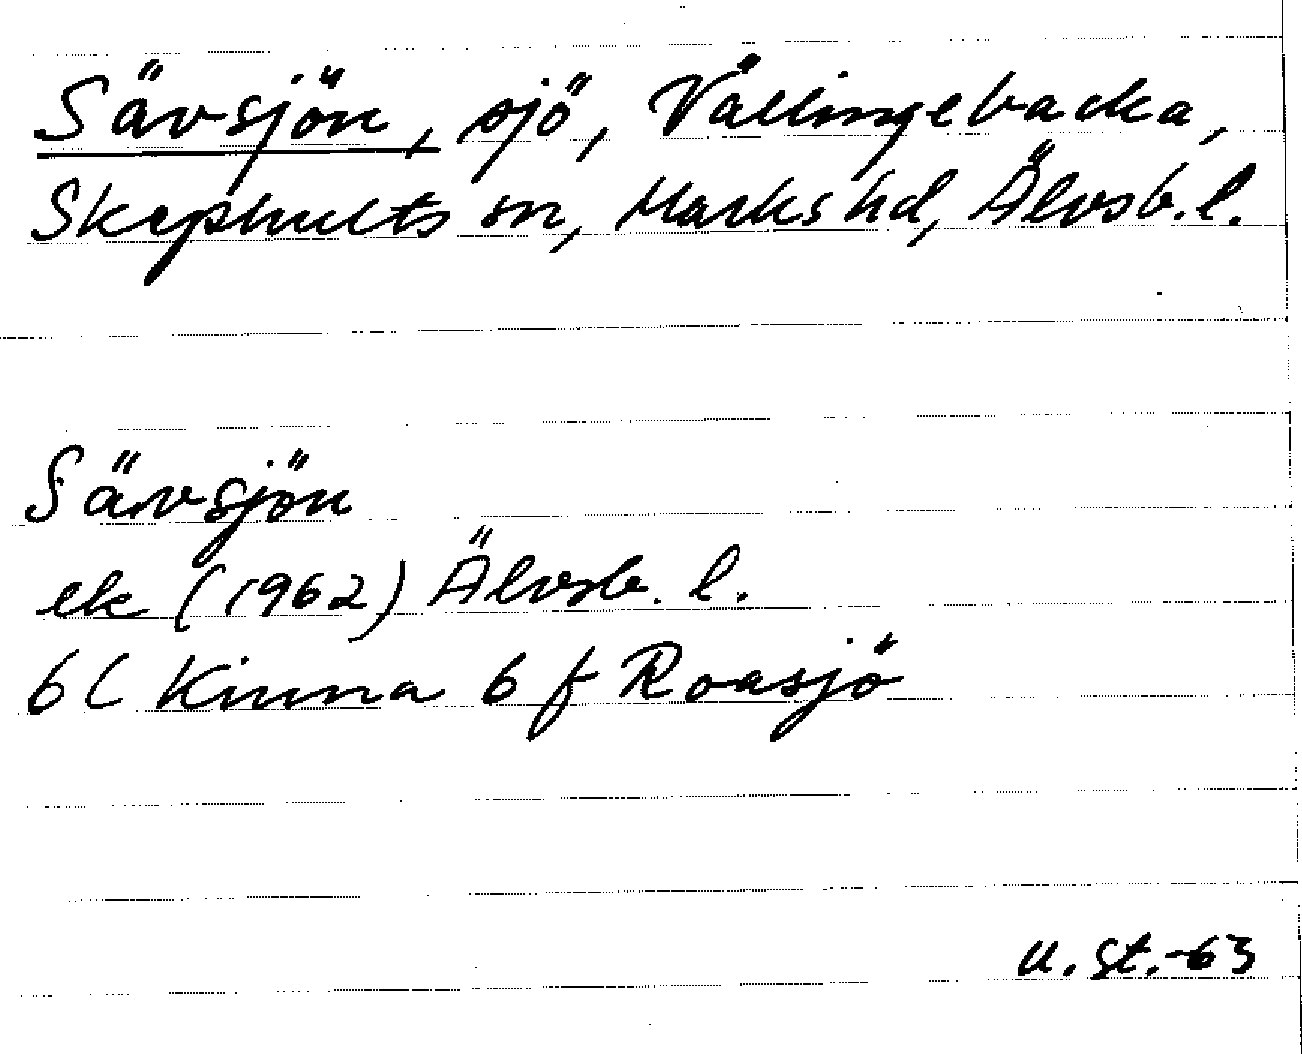 Sävsjön, sjö, Vällingebacka,
Skephults sn, Marks hd, Älvsb. l.
Sävsjön
ek (1962) Älvsb. l.
6C Kinna 6 f Roasjö
U. St. -63